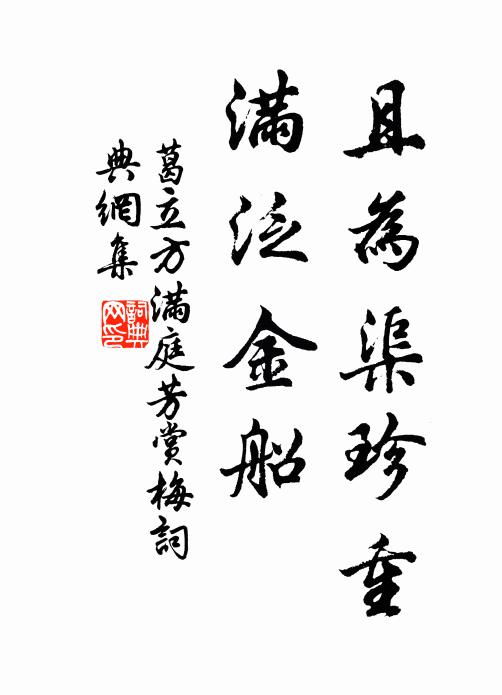 且為渠珍重
滿泛金船
葛立方滿庭芳賞梅詞
典網集
詞典網印